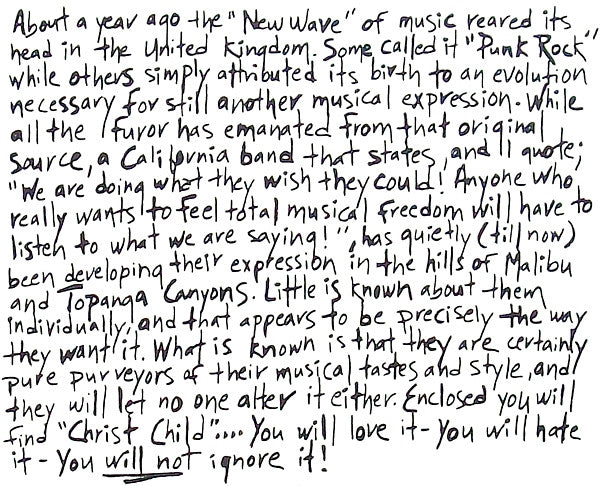 About a year ago the "New Wave" of music reared its
head in the United Kingdom. Some called it "Punk Rock"
while others simply attributed its birth to an evolution
necessary for still another musical expression. While
all the furor has emanated from that original
source, a California band that states, and I quote;
"We are doing what they wish they could! Anyone who
really wants to feel total musical freedom will have to
listen to what we are saying!", has quietly (till now)
been developing their expression in the hills of Malibu
and Topanga Canyons. Little is known about them
individually, and that appears to be precisely the way
they want it. What is known is that they are certainly
pure purveyors of their musical tastes and style, and
they will let no one alter it either. Enclosed you will
find "Christ Child".... You will love it - you will hate
it - You will not ignore it!